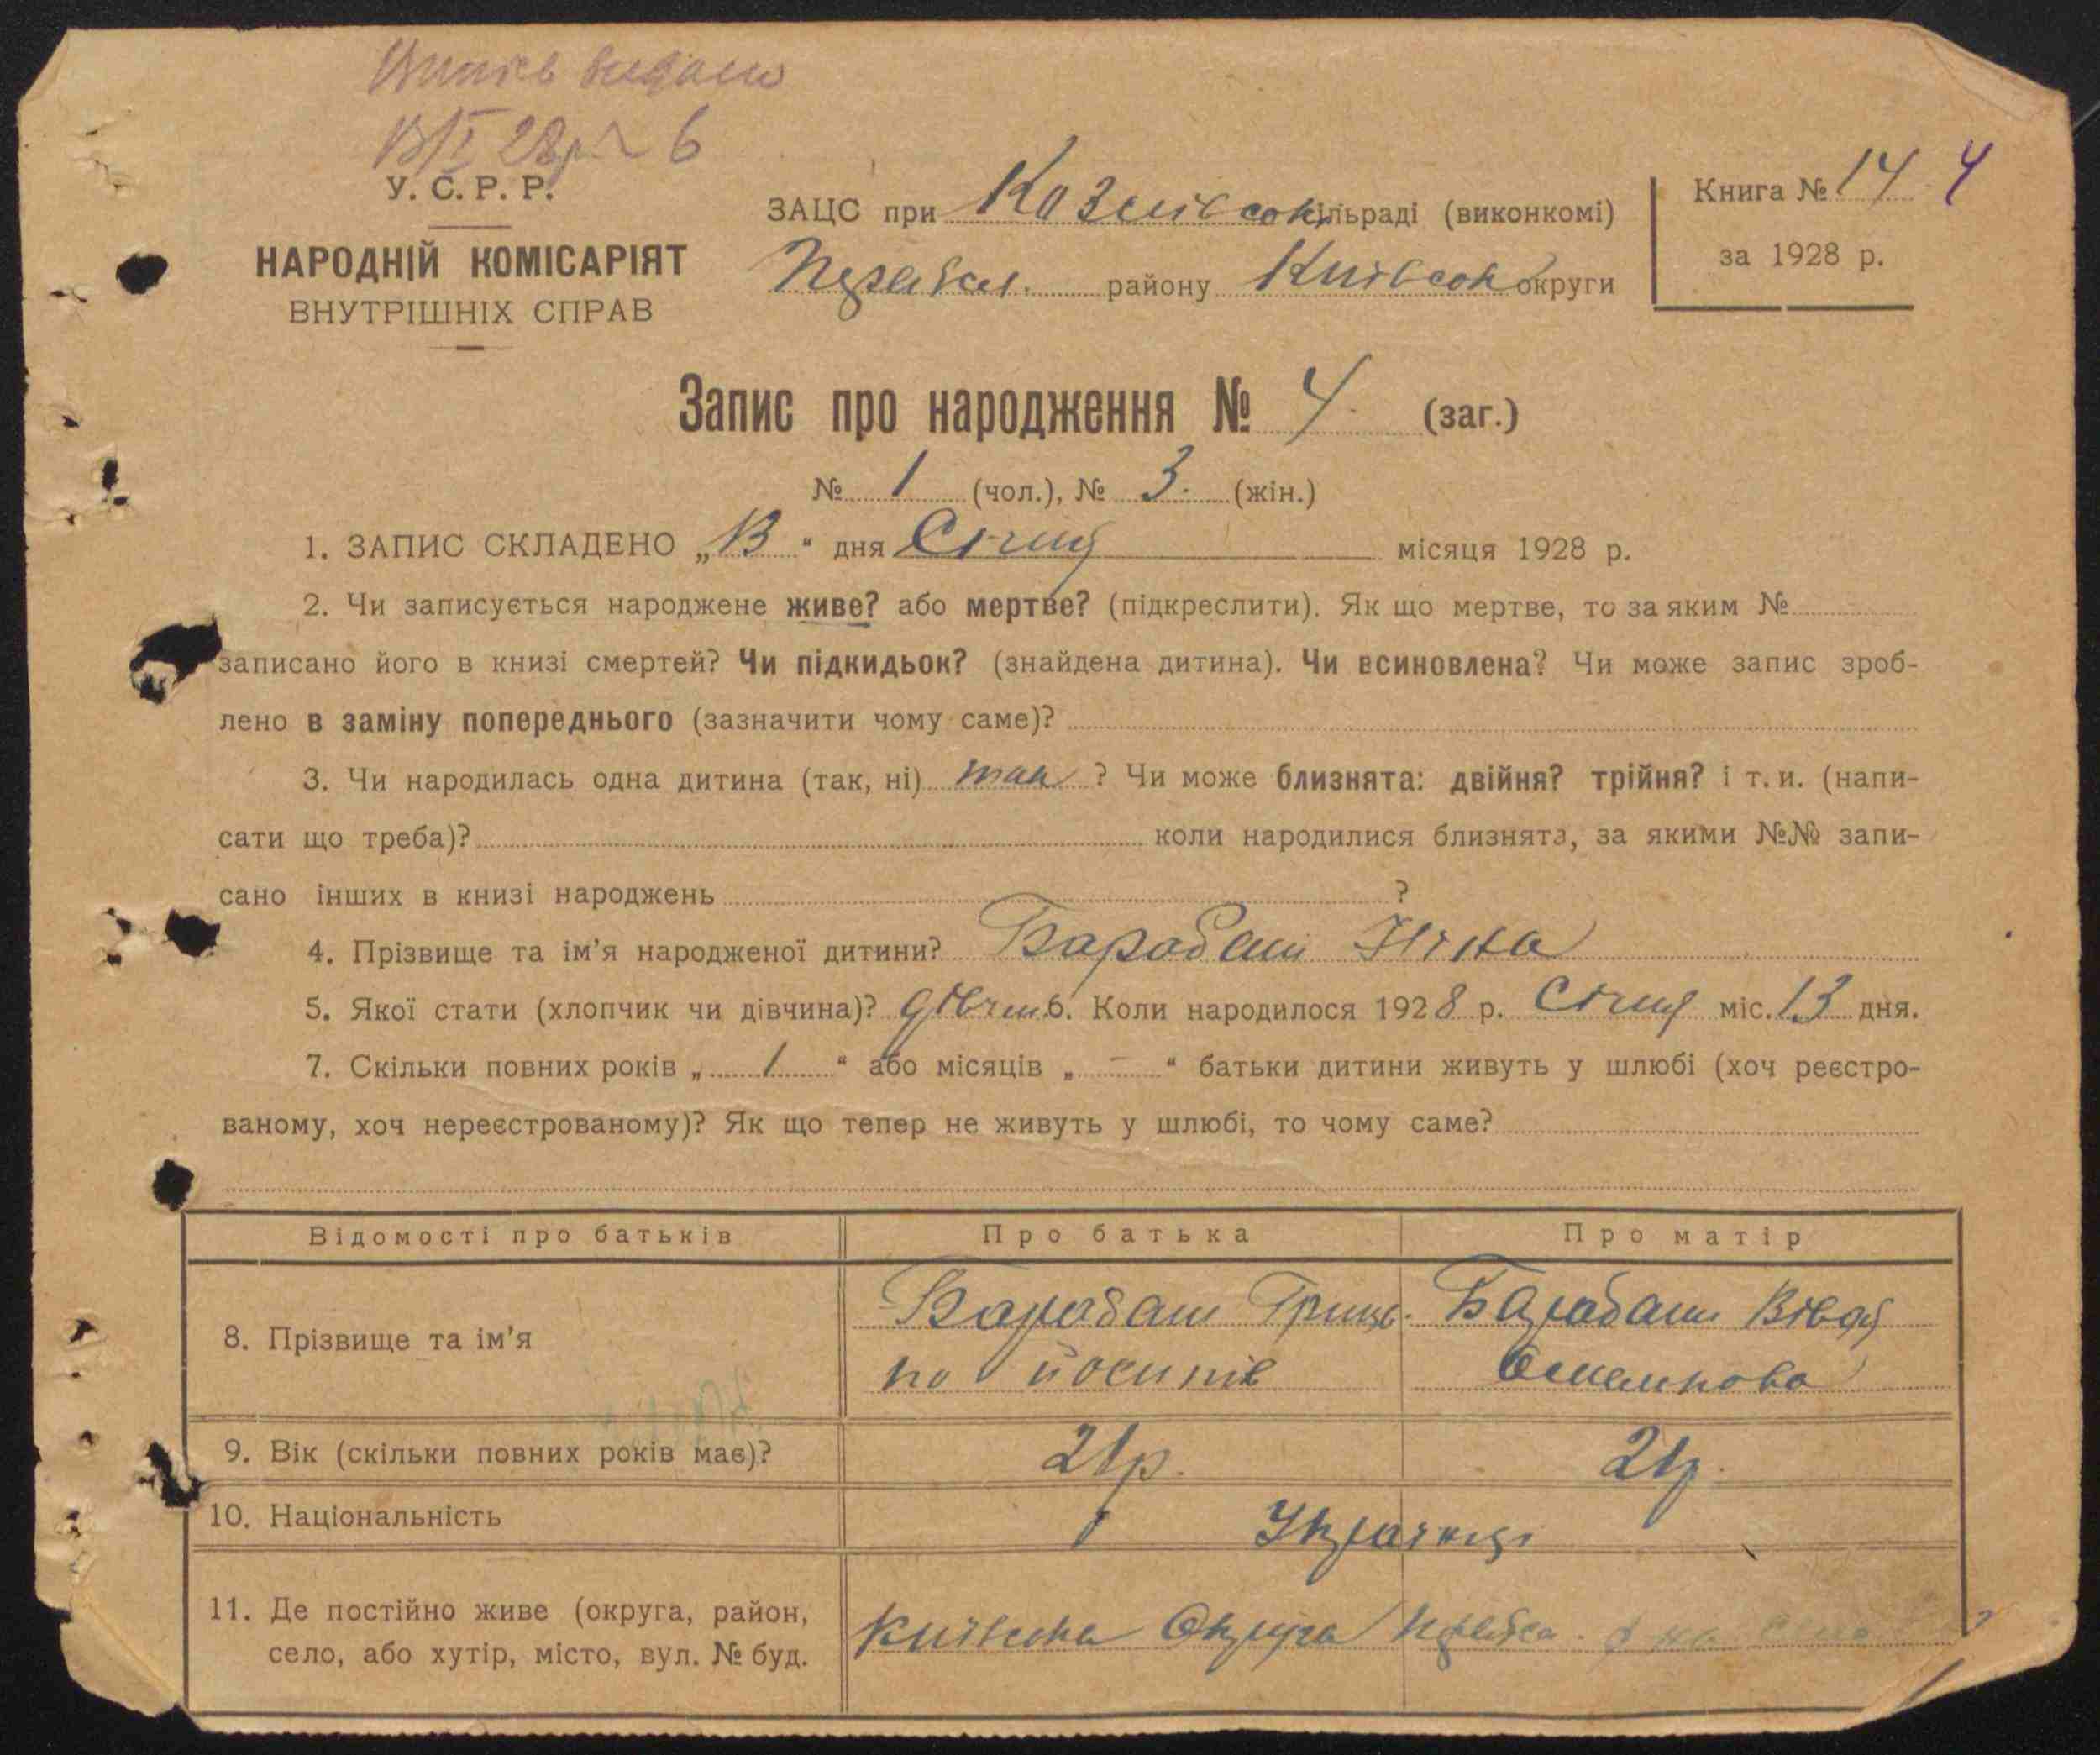 Випись видано
13/I 28р. № 6
У. С. Р. Р.
НАРОДНІЙ КОМІСАРІЯТ
ВНУТРІШНІХ СПРАВ
ЗАЦС при сільраді (виконкомі)
району Київськ округи
Книга № 14 4
за 1928 р.
Запис про народження № 4. (заг.)
№ 1 (чол.), № 3. (жін.)
1. ЗАПИС СКЛАДЕНО „13“ дня Січня місяця 1928 р.
2. Чи записується народжене живе? або мертве? (підкреслити). Як що мертве, то за яким №
записано його в книзі смертей? Чи підкидьок? (знайдена дитина). Чи всиновлена? Чи може запис зроб-
лено в заміну попереднього (зазначити чому саме)?
3. Чи народилась одна дитина (так, ні) так ? Чи може близнята: двійня? трійня? і т. и. (напи-
сати що треба)? коли народилися близнята, за якими №№ запи-
сано інших в книзі народжень ?
4. Прізвище та ім'я народженої дитини? Барабаш Ніна
5. Якої стати (хлопчик чи дівчина)? дівчин 6. Коли народилося 1928 р. Січня міс. 13 дня.
7. Скільки повних років „ 1 “ або місяців „ – “ батьки дитини живуть у шлюбі (хоч реєстро-
ваному, хоч нереєстрованому)? Як що тепер не живуть у шлюбі, то чому саме?
Відомості про батьків Про батька Про матір
8. Прізвище та ім'я Барабаш Гриць. Барабаш
по йосипів
9. Вік (скільки повних років має)? 21р. 21р.
10. Національність Українці
11. Де постійно живе (округа, район,
село, або хутір, місто, вул. № буд. Київська Округа